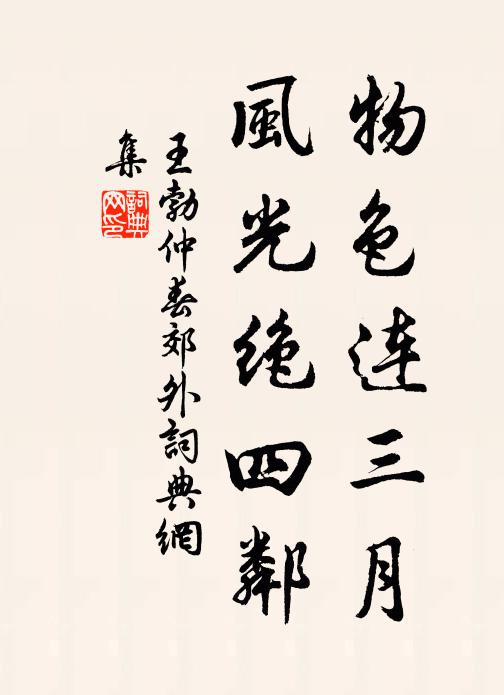 物色連三月
風光絶四鄰
王勃仲春郊外詞典網
集
詞典網印